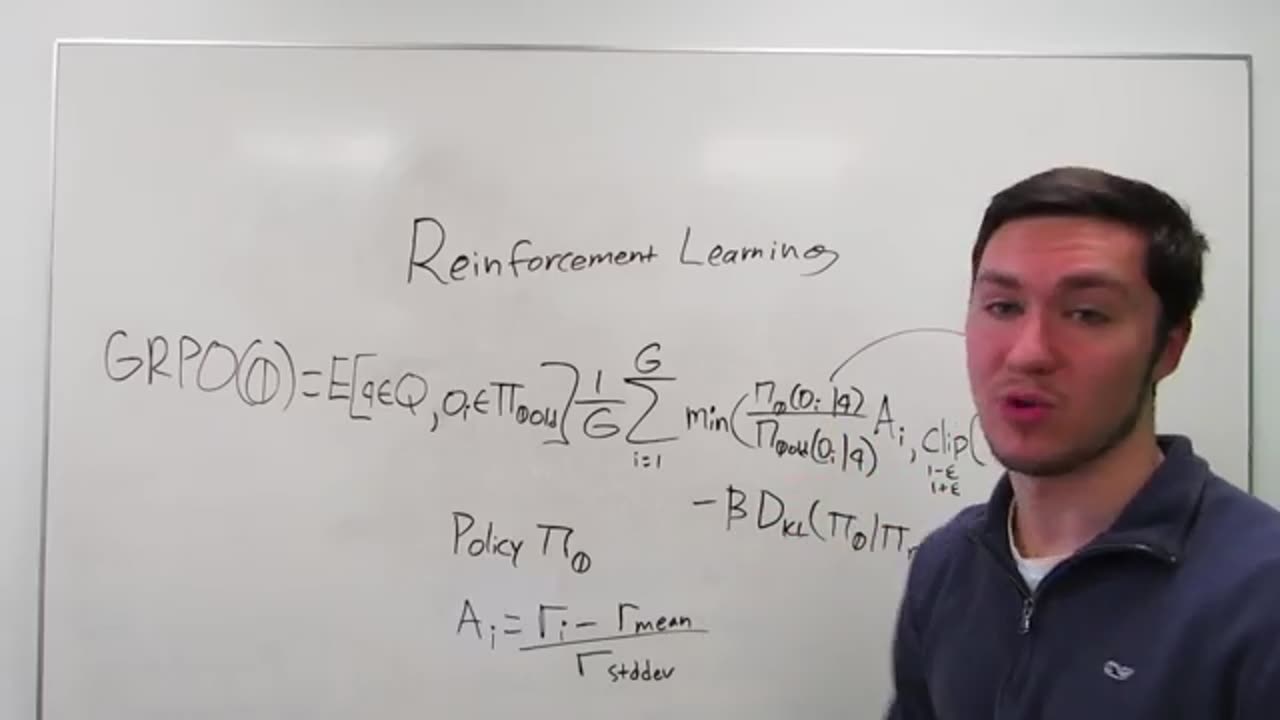 Reinforcement Learning
GRPO(Φ)=E[q∈Q, Oi∈ΠΦold] 1/G Σ G i=1 min(ΠΦ(Oi|q)/ΠΦold(Oi|q) Ai, Clip( 1-ε 1+ε
-β DKL(ΠΦ|Π
Policy ΠΦ
Ai = ri - rmean
rstddev